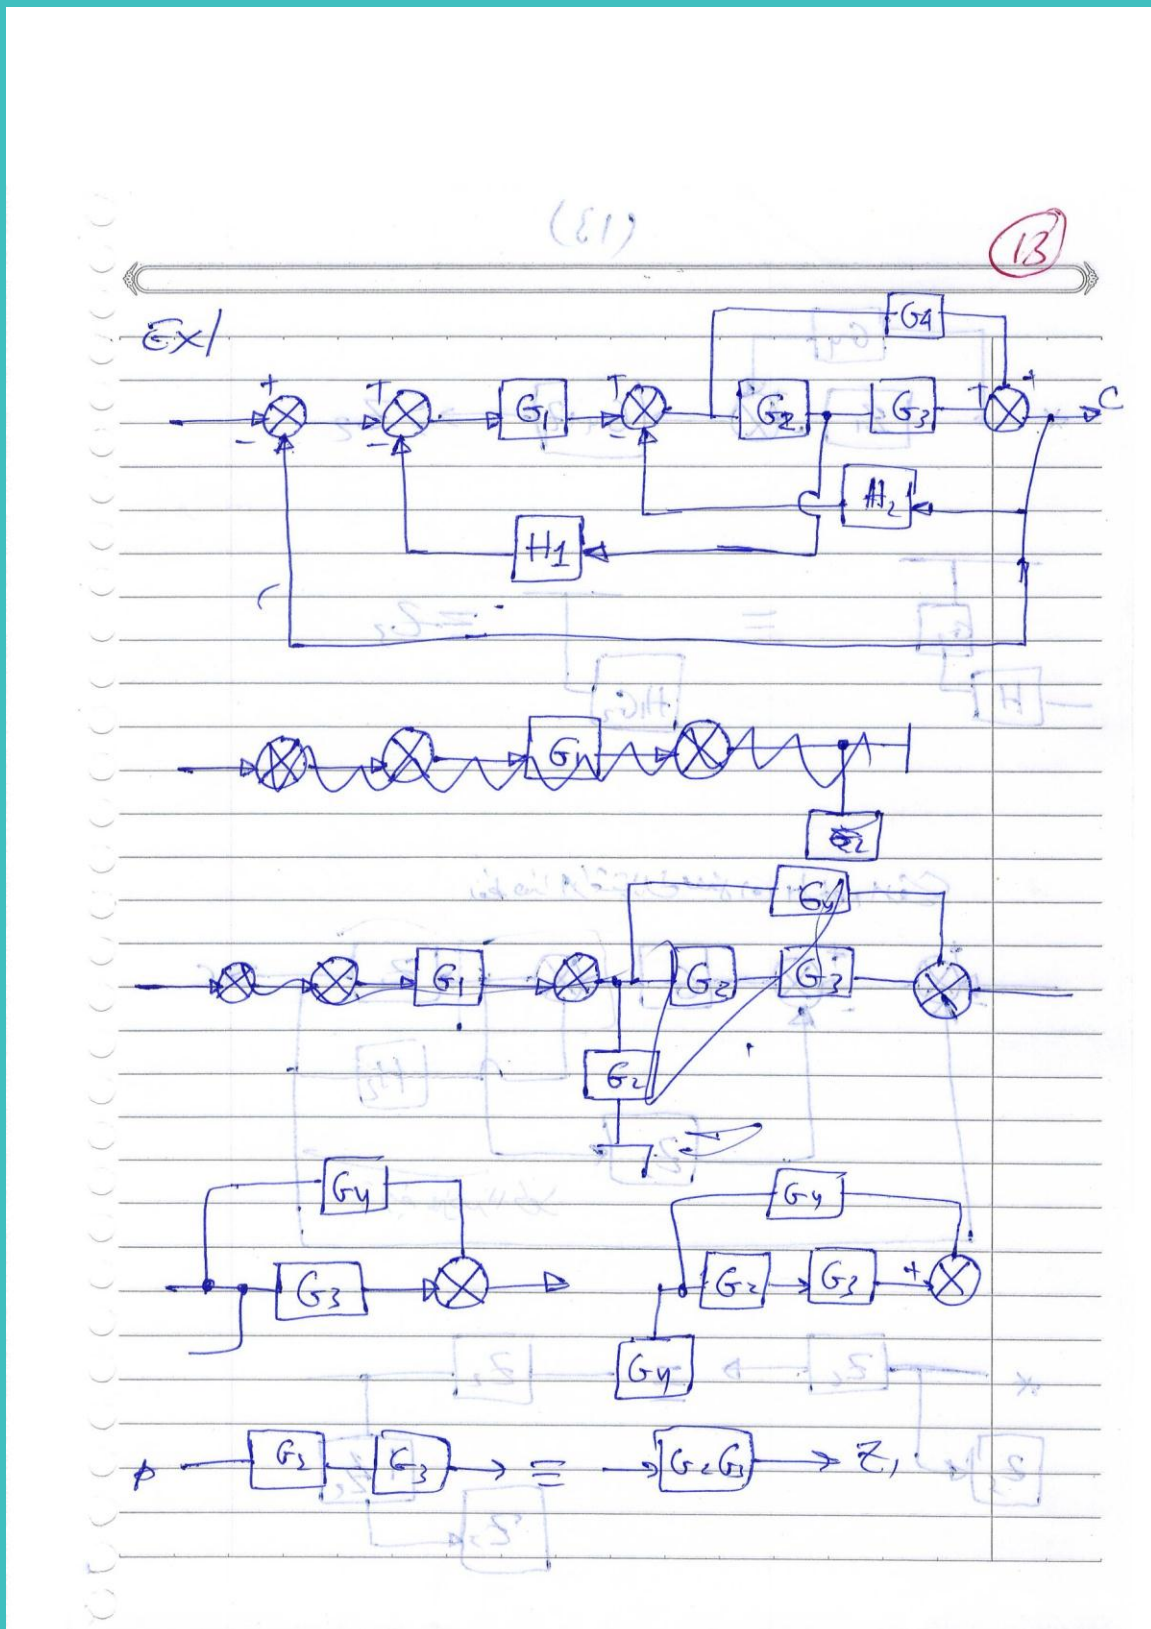 13
Ex/
G4
+ + + + +
G1 G2 G3 C
- - -
H2
H1
G1
G2
G4
G1 G2 G3
G2
G4 G4
G3 G2 G3 +
G4
G2 G3 ≡ G2G3 Z1